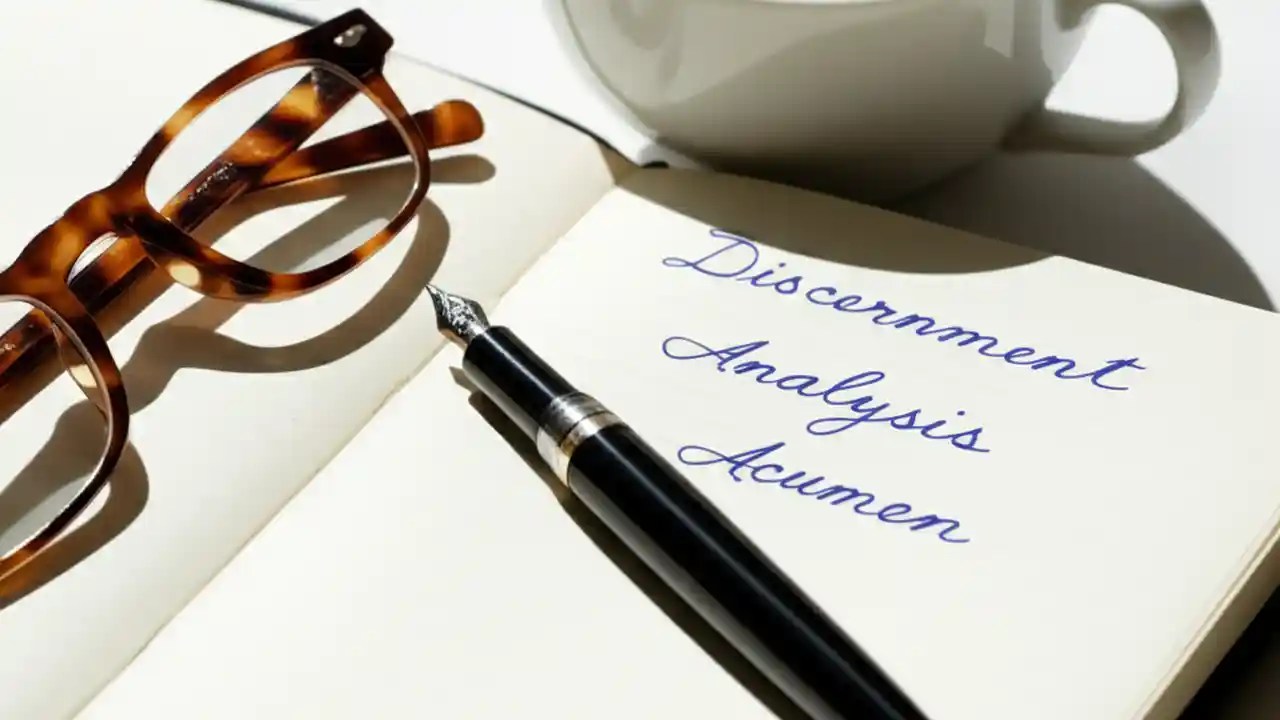 Discernment
Analysis
Acumen